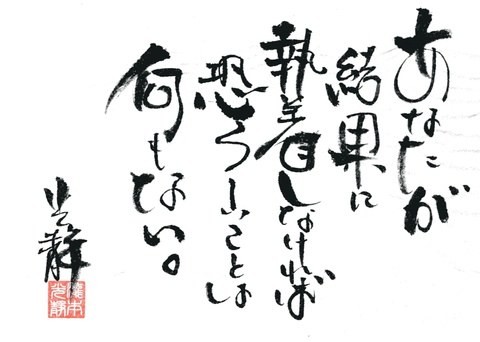 あなたが
結果に
執着しなければ
恐ろしいことは
何もない。